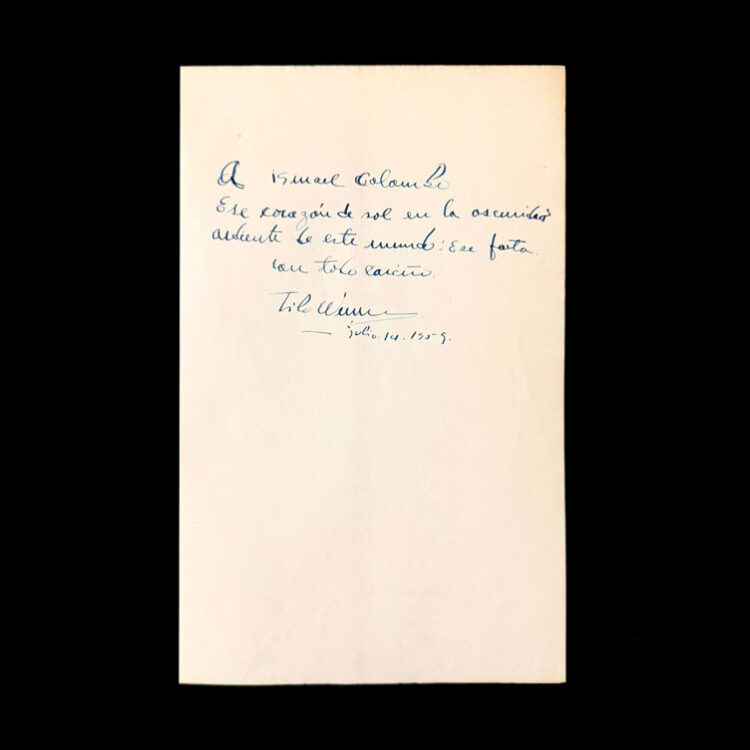 A Ismael Colombo
Ese corazón de sol en la oscuridad
ardiente de este mundo: Ese poeta.
con todo cariño.
Tilo Wenner
julio. 14. 1959.